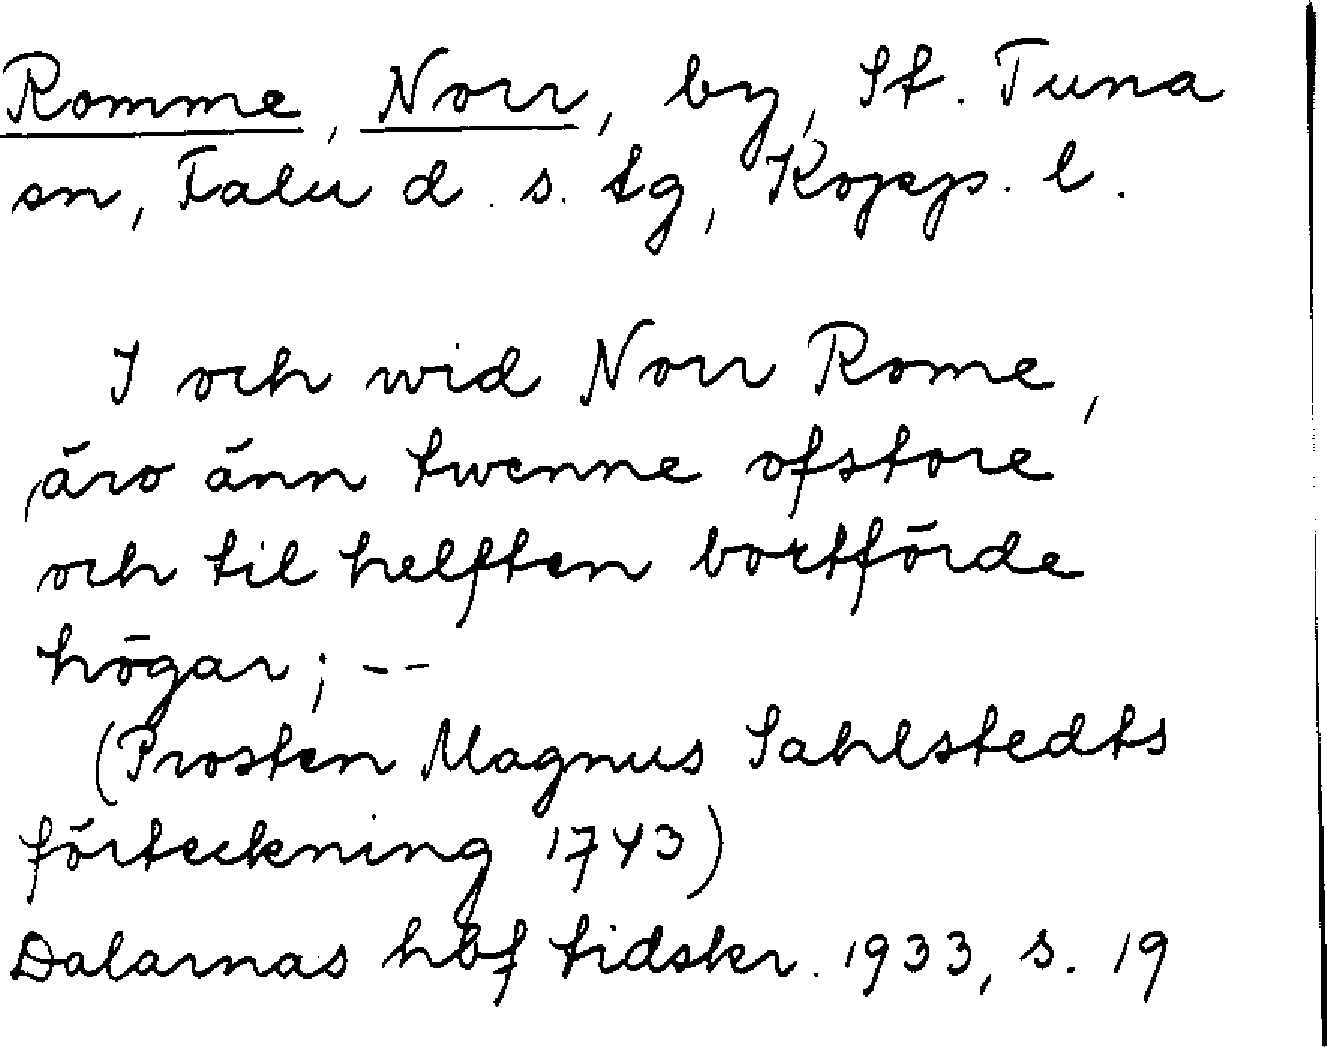 Romme, Norr, by, St. Tuna
sn, Falu d. s. tg, Kopp. l.
I och wid Norr Rome,
äro änn twenne ofstore
och til helften bortförde
högar; --
(Prosten Magnus Sahlstedts
förteckning 1743)
Dalarnas hbf tidskr. 1933, s. 19